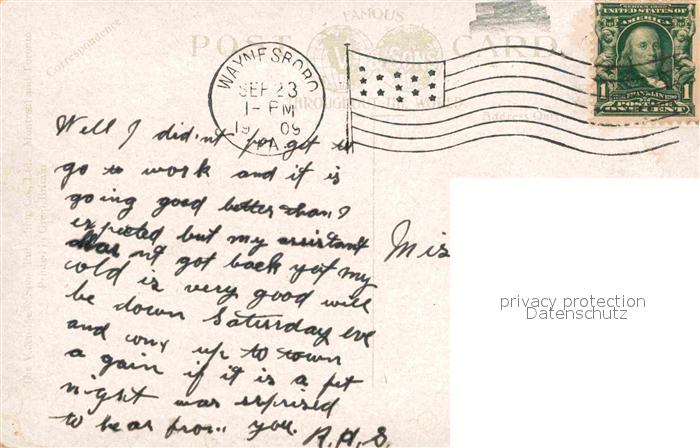 Correspondence.
FAMOUS
POST CARD
THROUGHOUT THE WORLD
Address Only
WAYNESBORO
SEP 23
1- PM
1909
PA.
SERIES 1902
UNITED STATES OF AMERICA
FRANKLIN
1 POSTAGE 1
ONE CENT
Well I did.nt forget to
go to work and it is
going good better than I
expected but my assistant
has nt got back yet my
cold is very good will
be down Saturday eve
and up to town
a gain if it is a fit
night was surprised
to hear from you.
R.H.S.
Mis
privacy protection
Datenschutz